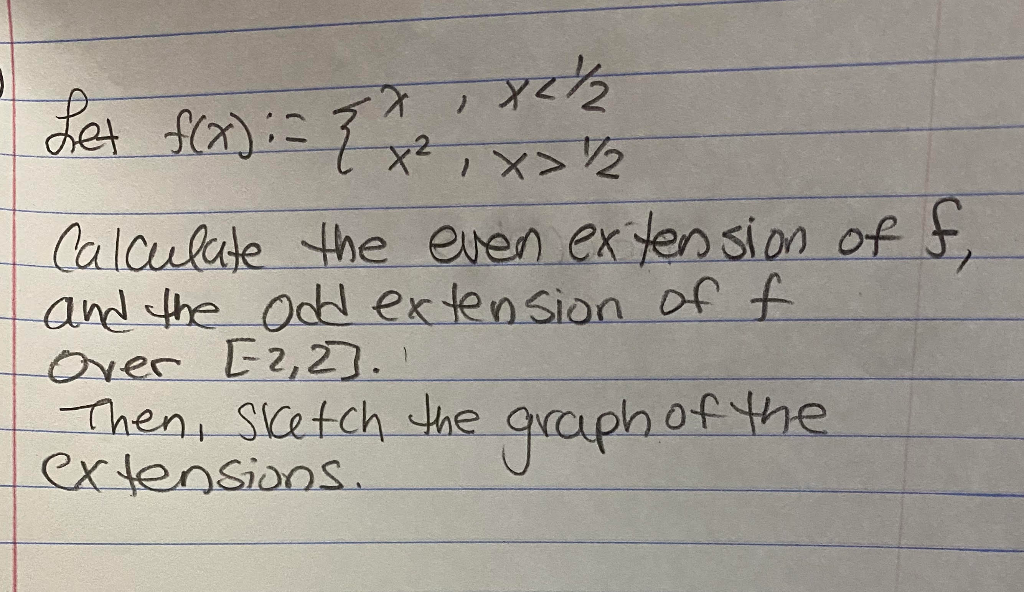 Let f(x) := { x , x < 1/2
x² , x > 1/2
Calculate the even extension of f,
and the odd extension of f
over [-2,2].
Then, sketch the graph of the
extensions.